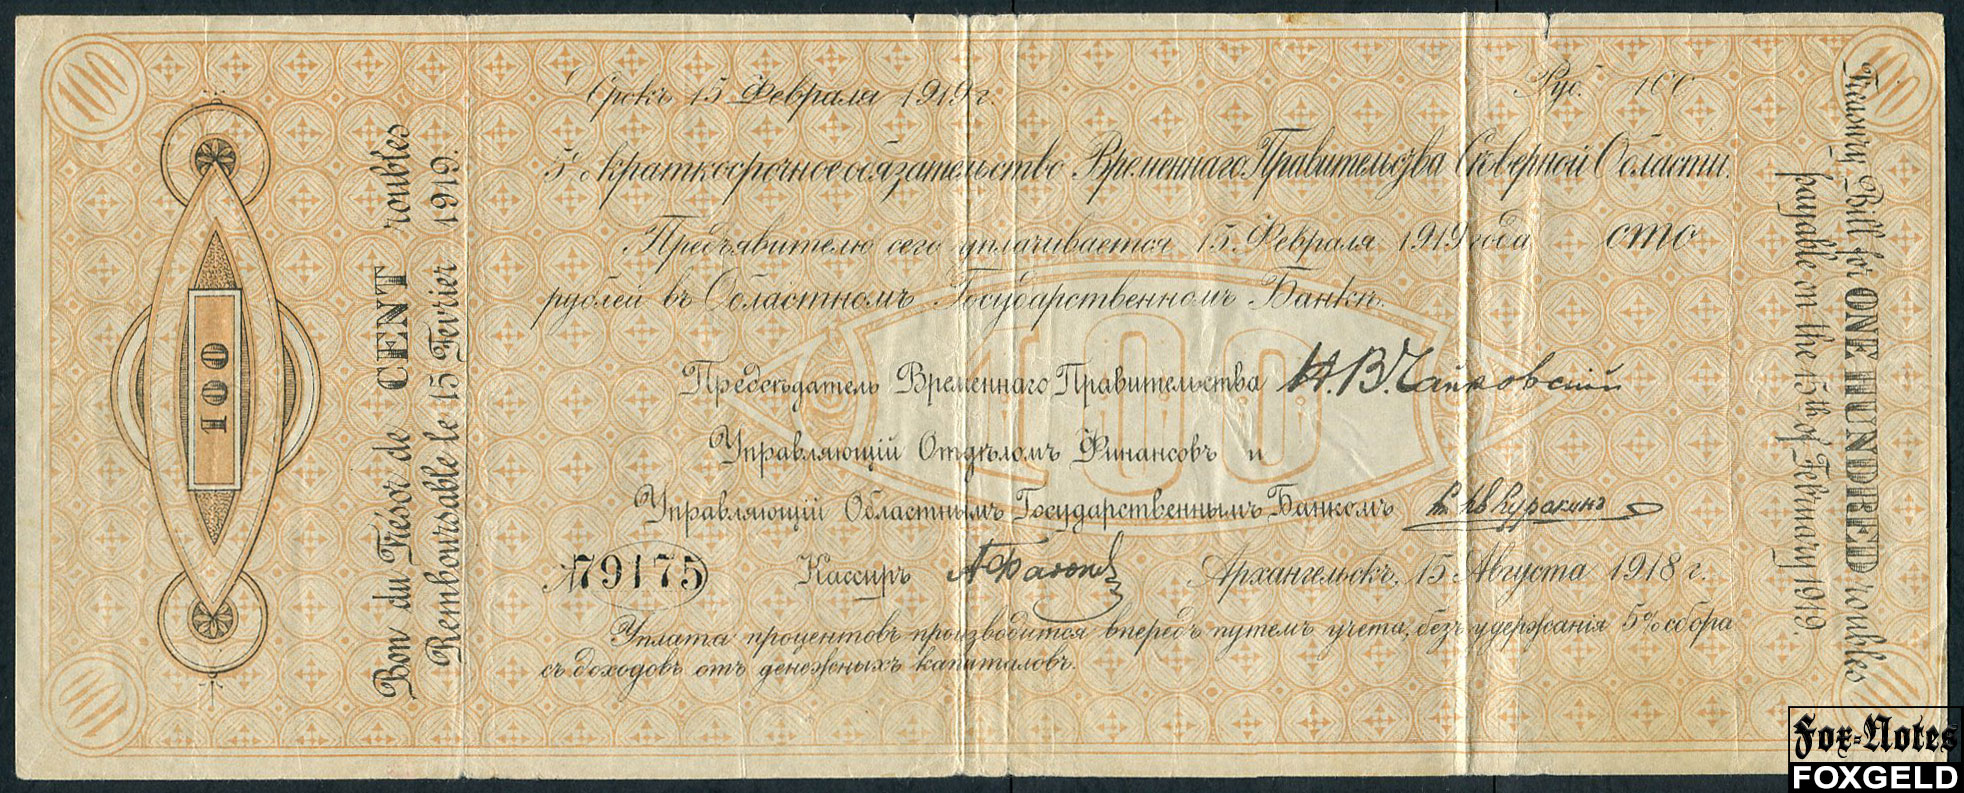 100
100
Срокъ 15 Февраля 1919 г.
Руб. 100
5% краткосрочное обязательство Временнаго Правительства Сѣверной Области.
Предъявителю сего уплачивается 15 Февраля 1919 года сто
рублей въ Областномъ Государственномъ Банкѣ.
100
Предсѣдатель Временнаго Правительства Н. В. Чайковскій
Управляющій Отдѣломъ Финансовъ и
Управляющій Областнымъ Государственнымъ Банкомъ Куракинъ
№ 79175
Кассиръ
Архангельскъ, 15 Августа 1918 г.
Уплата процентовъ производится впередъ путемъ учета, безъ удержанія 5% сбора
съ доходовъ отъ денежныхъ капиталовъ.
100
Bon du Trésor de CENT roubles
Remboursable le 15 Fevrier 1919.
Treasury Bill for ONE HUNDRED roubles
payable on the 15th of February 1919.
100
100
Fox-Notes
FOXGELD